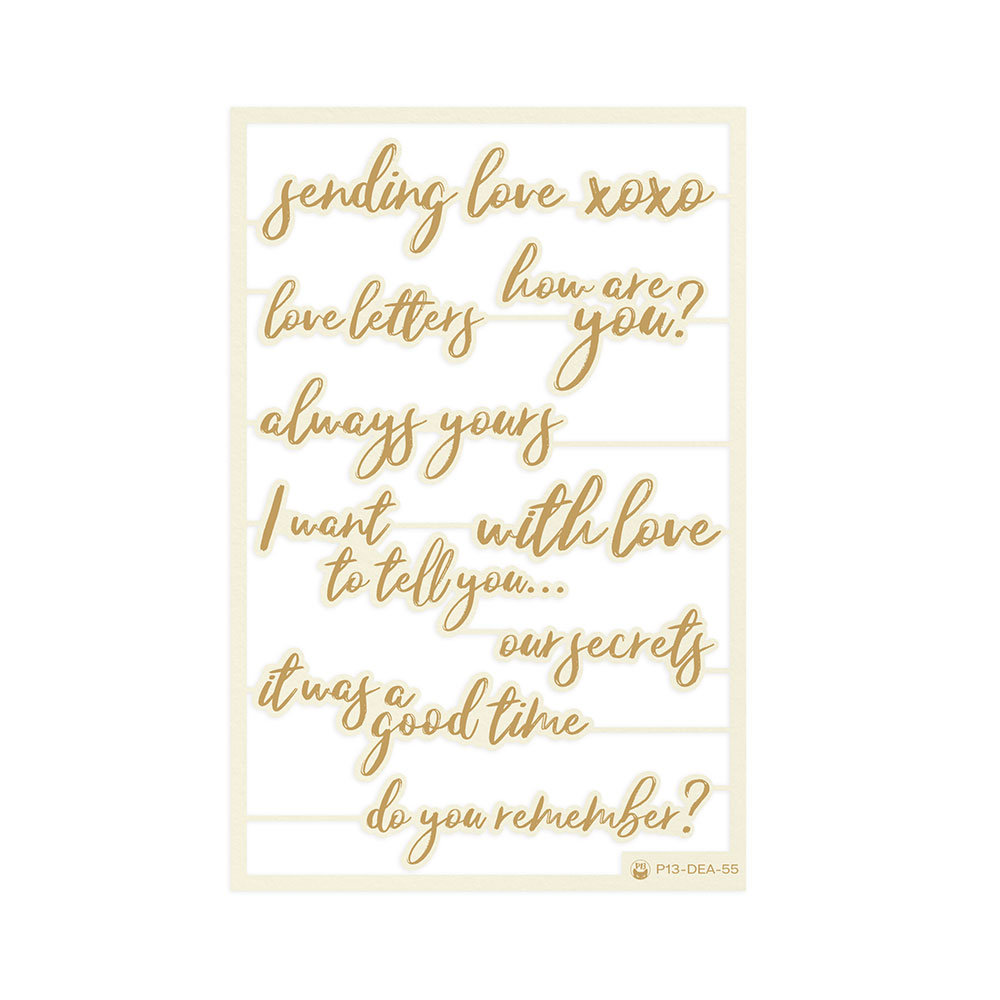 sending love xoxo
how are
love letters
you?
always yours
I want
with love
to tell you...
our secrets
it was a
good time
do you remember?
PB
P13-DEA-55